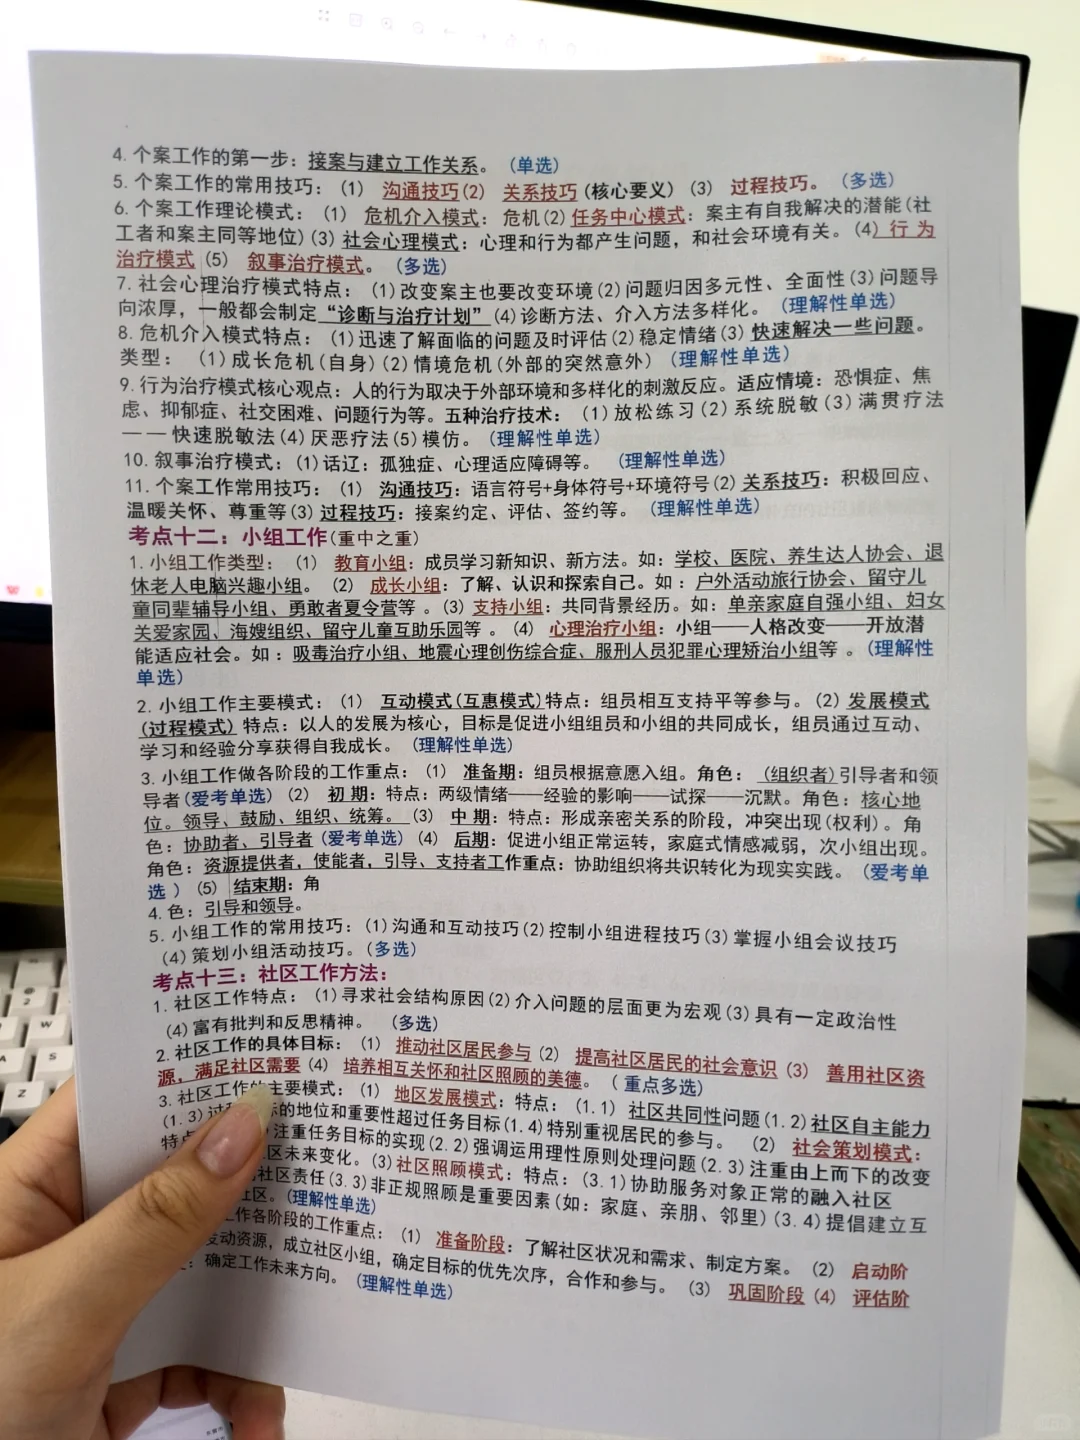 4. 个案工作的第一步：接案与建立工作关系。（单选）
5. 个案工作的常用技巧：（1） 沟通技巧(2) 关系技巧(核心要义) (3) 过程技巧。（多选）
6. 个案工作理论模式：（1） 危机介入模式：危机(2)任务中心模式：案主有自我解决的潜能(社
工者和案主同等地位)(3)社会心理模式：心理和行为都产生问题，和社会环境有关。(4) 行 为
治疗模式 (5) 叙事治疗模式。（多选）
7. 社会心理治疗模式特点：（1)改变案主也要改变环境(2)问题归因多元性、全面性(3)问题导
向浓厚，一般都会制定“诊断与治疗计划”(4)诊断方法、介入方法多样化。（理解性单选）
8. 危机介入模式特点：（1)迅速了解面临的问题及时评估(2)稳定情绪(3)快速解决一些问题。
类型：（1)成长危机(自身)(2)情境危机(外部的突然意外)（理解性单选）
9. 行为治疗模式核心观点：人的行为取决于外部环境和多样化的刺激反应。适应情境：恐惧症、焦
虑、抑郁症、社交困难、问题行为等。五种治疗技术：（1)放松练习(2)系统脱敏(3)满贯疗法
——快速脱敏法(4)厌恶疗法(5)模仿。（理解性单选）
10. 叙事治疗模式：(1)话辽：孤独症、心理适应障碍等。（理解性单选）
11. 个案工作常用技巧：（1） 沟通技巧：语言符号+身体符号+环境符号(2)关系技巧：积极回应、
温暖关怀、尊重等(3)过程技巧：接案约定、评估、签约等。（理解性单选）
考点十二：小组工作(重中之重)
1. 小组工作类型：（1） 教育小组：成员学习新知识、新方法。如：学校、医院、养生达人协会、退
休老人电脑兴趣小组。（2） 成长小组：了解、认识和探索自己。如：户外活动旅行协会、留守儿
童同辈辅导小组、勇敢者夏令营等 。(3) 支持小组：共同背景经历。如：单亲家庭自强小组、妇女
关爱家园、海嫂组织、留守儿童互助乐园等 。（4） 心理治疗小组：小组——人格改变——开放潜
能适应社会。如：吸毒治疗小组、地震心理创伤综合症、服刑人员犯罪心理矫治小组等 。（理解性
单选）
2. 小组工作主要模式：（1） 互动模式(互惠模式)特点：组员相互支持平等参与。(2) 发展模式
(过程模式) 特点：以人的发展为核心，目标是促进小组组员和小组的共同成长，组员通过互动、
学习和经验分享获得自我成长。（理解性单选）
3. 小组工作做各阶段的工作重点：（1） 准备期：组员根据意愿入组。角色：（组织者)引导者和领
导者(爱考单选）（2） 初 期：特点：两级情绪——经验的影响——试探——沉默。角色：核心地
位。领导、鼓励、组织、统筹。（3） 中 期：特点：形成亲密关系的阶段，冲突出现(权利)。角
色：协助者、引导者(爱考单选）（4） 后期：促进小组正常运转，家庭式情感减弱，次小组出现。
角色：资源提供者，使能者，引导、支持者工作重点：协助组织将共识转化为现实实践。（爱考单
选 ）（5） 结束期：角
4. 色：引导和领导。
5. 小组工作的常用技巧：(1)沟通和互动技巧(2)控制小组进程技巧(3)掌握小组会议技巧
(4)策划小组活动技巧。(多选)
考点十三：社区工作方法：
1. 社区工作特点：（1)寻求社会结构原因(2)介入问题的层面更为宏观(3)具有一定政治性
(4)富有批判和反思精神。（多选）
2. 社区工作的具体目标：（1） 推动社区居民参与(2) 提高社区居民的社会意识 (3) 善用社区资
源，满足社区需要 (4) 培养相互关怀和社区照顾的美德。（ 重点多选）
3. 社区工作的主要模式：（1） 地区发展模式：特点：（1.1） 社区共同性问题(1.2)社区自主能力
(1.3)过程目标的地位和重要性超过任务目标(1.4)特别重视居民的参与。（2） 社会策划模式：
特点 注重任务目标的实现(2.2)强调运用理性原则处理问题(2.3)注重由上而下的改变
区未来变化。(3)社区照顾模式：特点：（3.1)协助服务对象正常的融入社区
社区责任(3.3)非正规照顾是重要因素(如：家庭、亲朋、邻里)(3.4)提倡建立互
社区。(理解性单选)
工作各阶段的工作重点：（1） 准备阶段：了解社区状况和需求、制定方案。（2） 启动阶
发动资源，成立社区小组，确定目标的优先次序，合作和参与。（3） 巩固阶段 (4) 评估阶
：确定工作未来方向。（理解性单选）